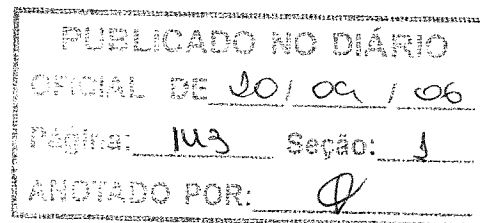 PUBLICADO NO DIÁRIO
OFICIAL DE 20/ 09 / 06
Página: 143 Seção: 1
ANOTADO POR: